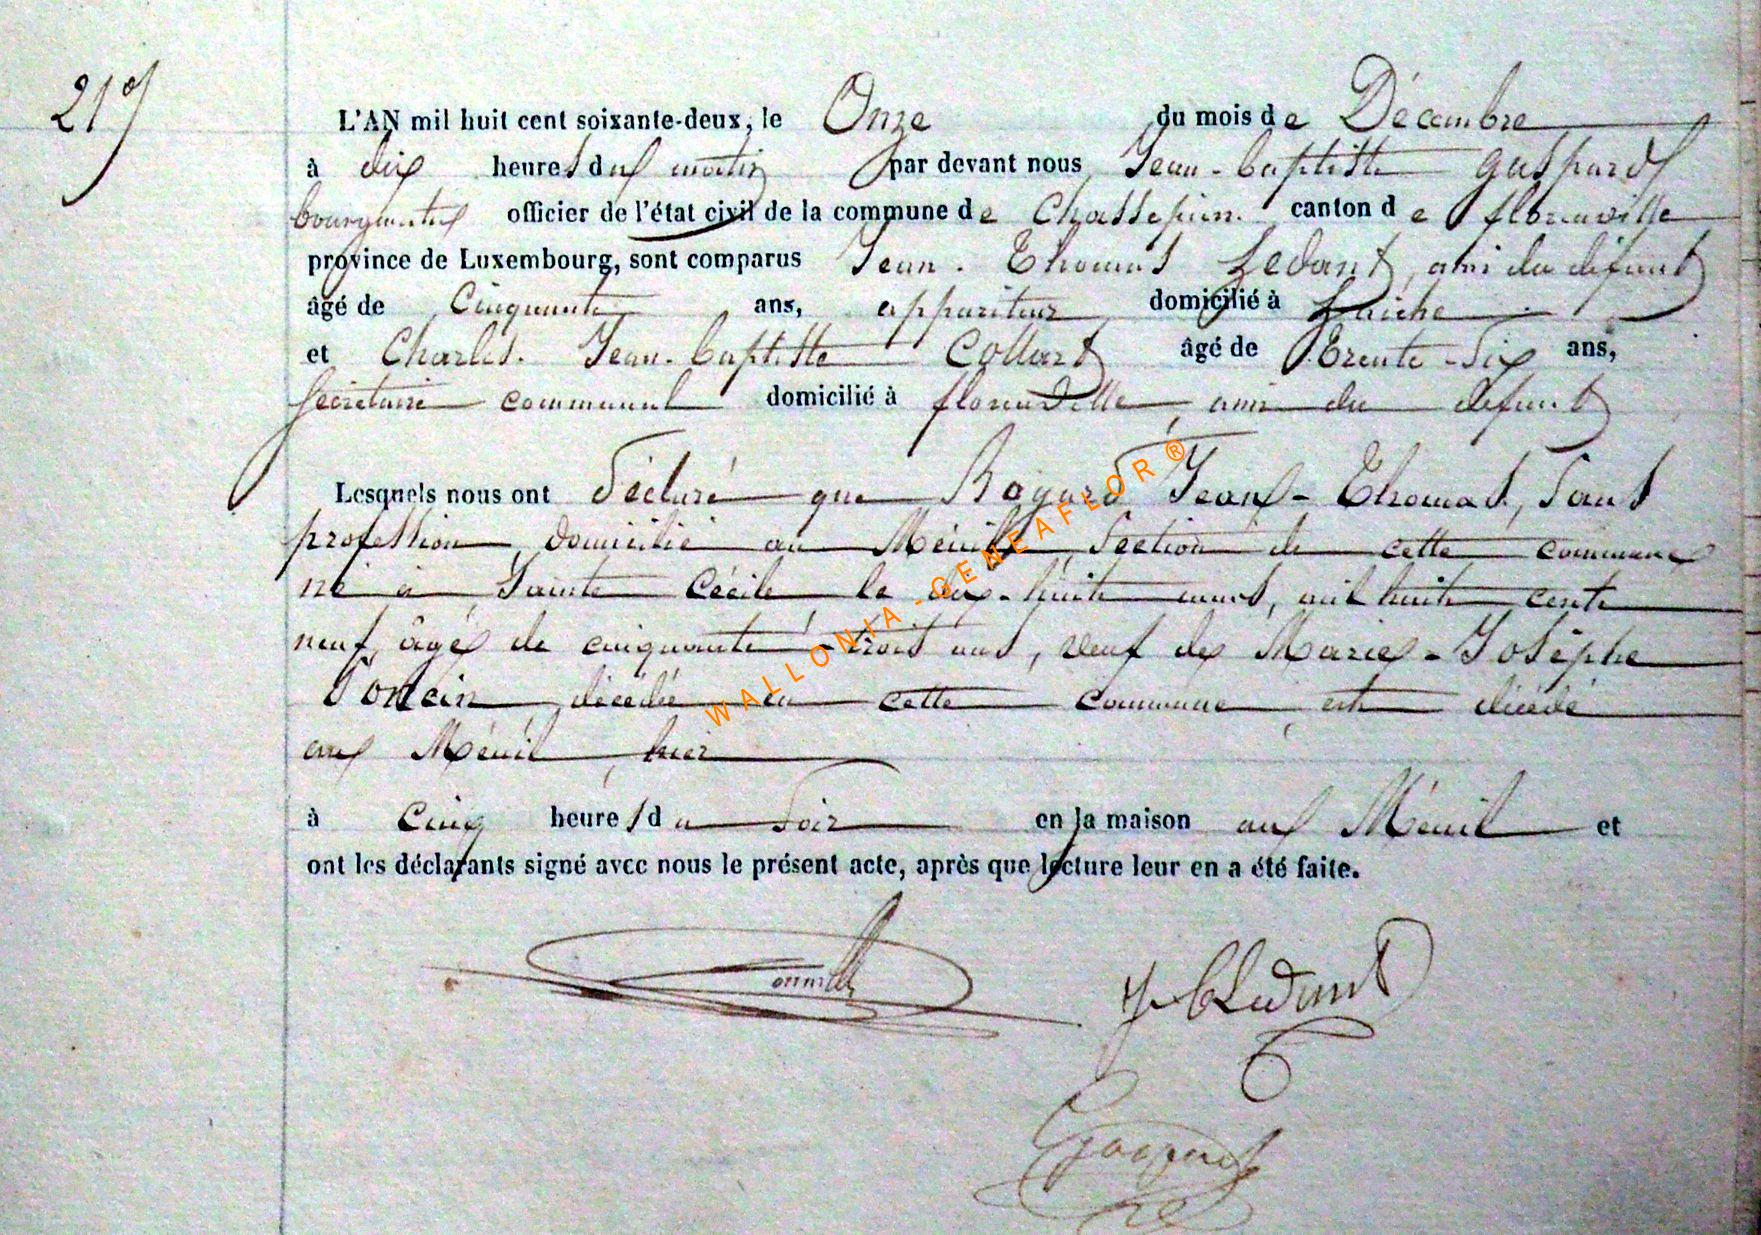 L'AN mil huit cent soixante-deux, le Onze du mois de Décembre
à dix heures du matin par devant nous Jean-baptiste Gaspard
bourgmestre officier de l'état civil de la commune de Chassepierre canton de florenville
province de Luxembourg, sont comparus Jean-Thomas Ledant, ami du défunt
âgé de Cinquante ans, appariteur domicilié à Laiche
et Charles-Jean-baptiste Collart âgé de Trente-Six ans,
Secrétaire communal domicilié à florenville, ami du défunt
Lesquels nous ont déclaré que Bayard Jean-Thomas, Sans
profession, domicilié au Ménil, Section de cette commune
né à Sainte Cécile, le dix-huit mars, mil huit cent
neuf, âgé de cinquante-trois ans, veuf de Marie-Josèphe
Poncin, décédée en cette commune, est décédé
au Ménil, hier
à cinq heures du Soir en la maison au Ménil et
ont les déclarants signé avec nous le présent acte, après que lecture leur en a été faite.
Ledant
Gaspard
WALLONIA-GENEAFLOR®